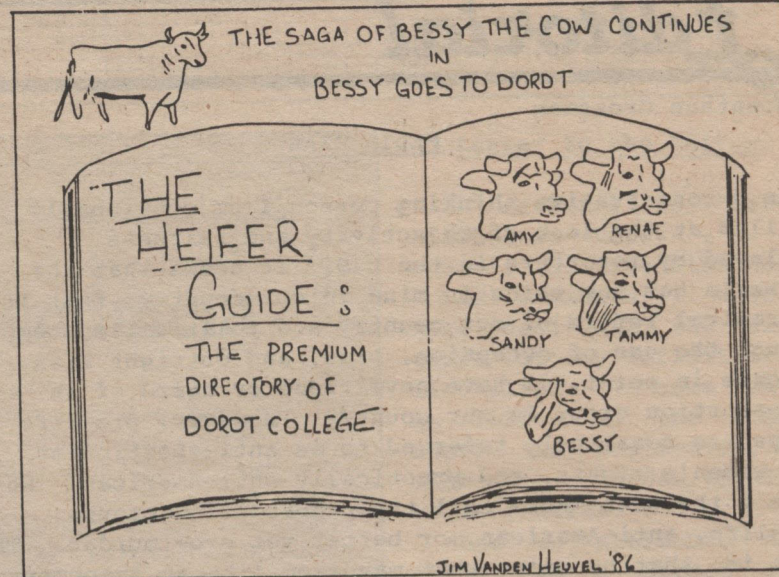 THE SAGA OF BESSY THE COW CONTINUES
IN
BESSY GOES TO DORDT
THE
HEIFER
GUIDE:
THE PREMIUM
DIRECTORY OF
DORDT COLLEGE
AMY
RENAE
SANDY
TAMMY
BESSY
JIM VANDEN HEUVEL '86